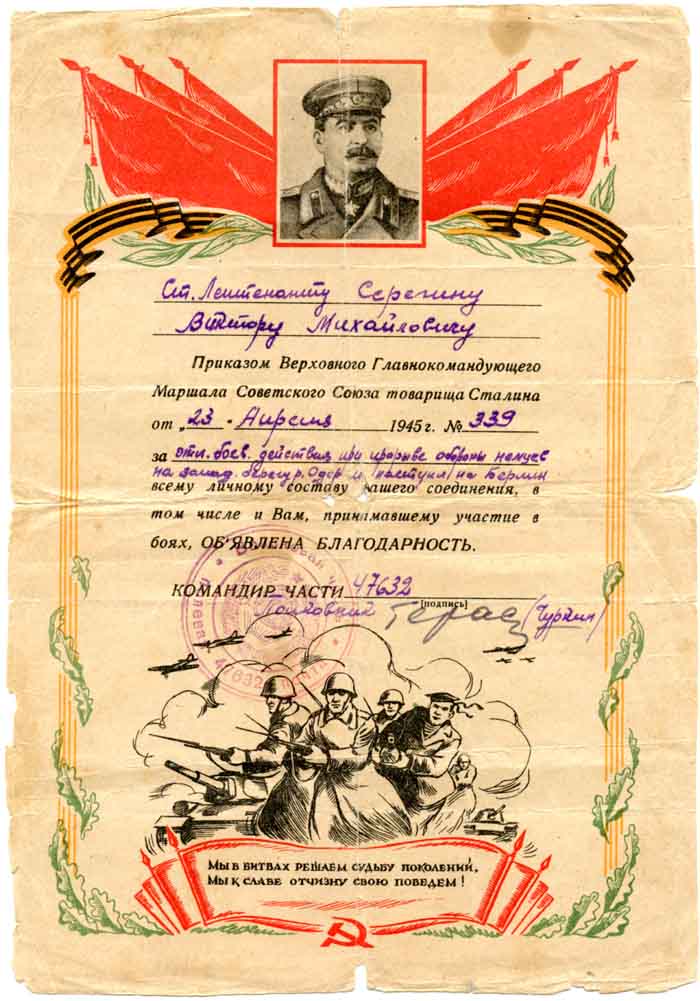 Ст. Лейтенанту Серегину
Виктору Михайловичу
Приказом Верховного Главнокомандующего
Маршала Советского Союза товарища Сталина
от „23 - Апреля 1945 г. № 339
за отл. боев. действия при прорыве обороны немцев
на запад. берегу р. Одер и наступл. на Берлин
всему личному составу вашего соединения, в
том числе и Вам, принимавшему участие в
боях, ОБ'ЯВЛЕНА БЛАГОДАРНОСТЬ.
КОМАНДИР ЧАСТИ 47632
Полковник [подпись] (Чуркин)
Мы в битвах решаем судьбу поколений,
Мы к славе отчизну свою поведем!